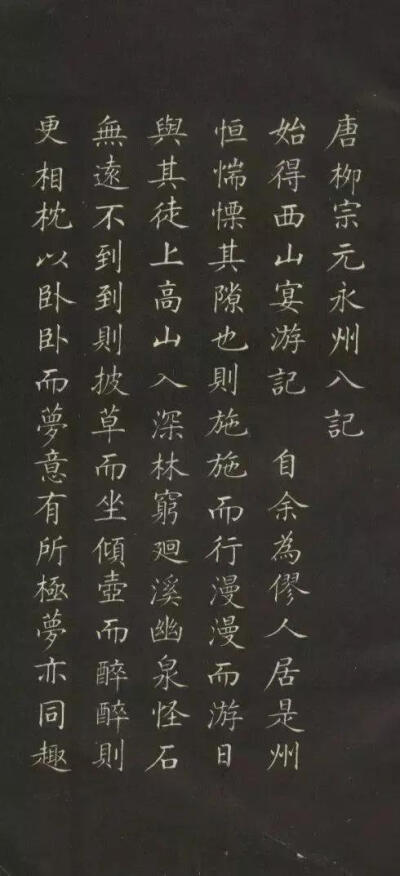 唐柳宗元永州八記
始得西山宴游記　自余為僇人居是州
恒惴慄其隙也則施施而行漫漫而游日
與其徒上高山入深林窮廻溪幽泉怪石
無遠不到到則披草而坐傾壺而醉醉則
更相枕以卧卧而夢意有所極夢亦同趣